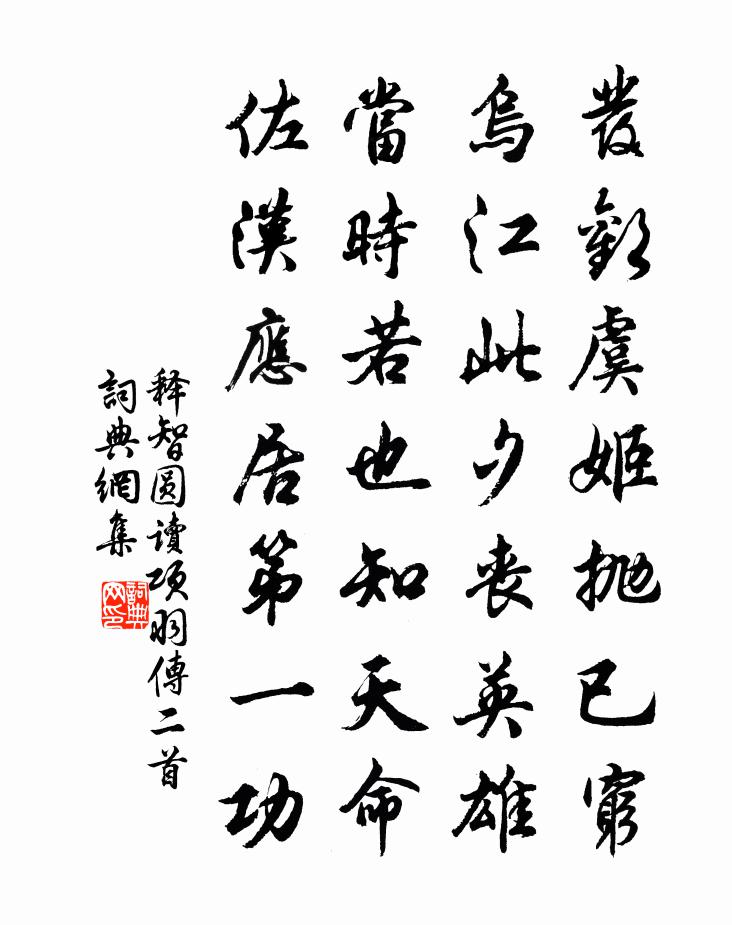 發歡虞姬拋已窮
烏江此夕喪英雄
當時若也知天命
佐漢應居第一功
释智圆讀项羽傳二首
詞典網集
詞典网印